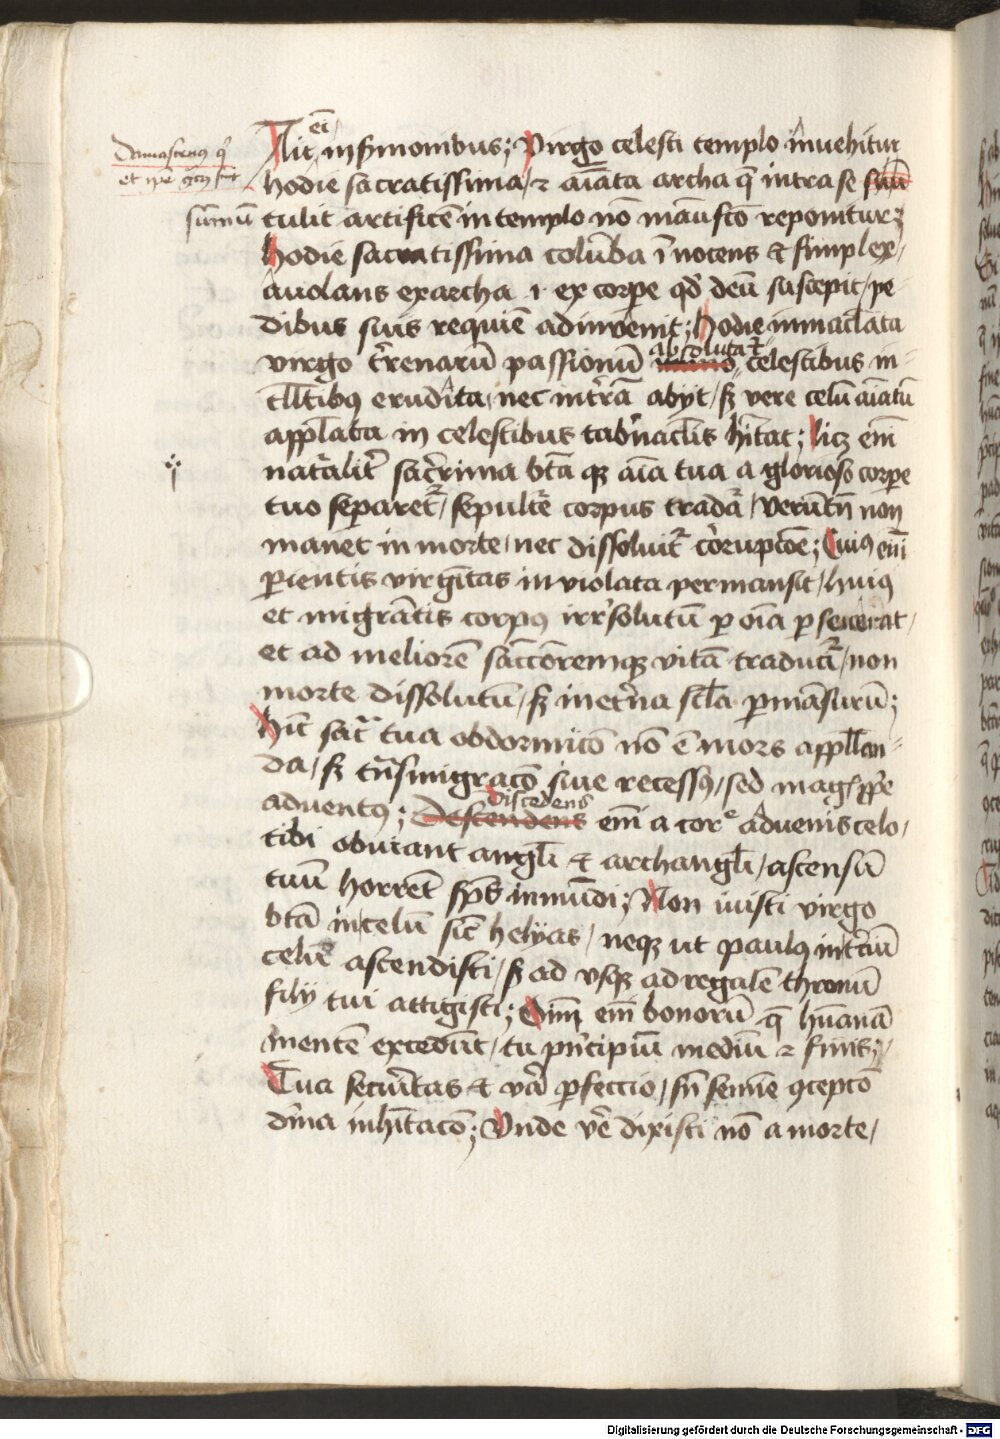 Damascenus q̄
et ip̄e gͣcꝫ fuit
sūmū
Ait ei in ſermonibus; Virgo celeſti templo īnuehitur
hodie ſacratiſſima / ⁊ aīata archa q̄ intra ſe ſuū
tulit artificē in templo nō manufcō reponitur;
hodie ſacratiſſima colūba īnocens & ſimplex /
auolans ex archa .i. ex corpe qd̄ deū ſuſcepit / pe
dibus ſuis requiē adinvenit; hodie immaclata
virgo t̄renarū paſſionū abſoluta celeſtibus in⸗
tll̄tibꝰ erudita / nec in t̄rā abyt / ſꝫ vere celū aīatū
appll̄ata in celeſtibus tabnaclis hītat; licꝫ em̄
nat̄alit̄ ſac̄rima bt̄a qꝫ aīa tua a glorioſo corpe
tuo ſeparet̄ / ſepult̄e corpus tradat̄ / verūtn̄ non
manet in morte / nec diſſoluit̄ corupcōe; Cuiꝰ em̄
ꝑientis virgītas inviolata permanſit / huiꝰ
et migrātis corpꝰ irr̄ſolutū ꝑ oīa ꝑſeverat /
et ad meliorē ſācc̄oremqꝫ vitā traducit̄ / non
morte diſſolutū / ſꝫ in et̄na ſcl̄a ꝑmāſurū;
Hīc ſac̄ tua obdormicō nō ē mors appll̄an⸗
da / ſꝫ tn̄ſmigracō ſiue receſſꝰ / ſed magꝭ ꝓpe
aduentꝰ; Deſcendens diſcedens em̄ a corꝑe advenis celo /
tibi obuiant angl̄i & archangl̄i / aſcenſū
tuū horrēt ſpūs inmūdi; Non iuiſti virgo
bt̄a in celū ſic̄ helyas / neqꝫ ut paulꝰ in t̄ciū
celū aſcendiſti / ſꝫ ad vſqꝫ ad regalē thronū
filij tui attigiſti; Oīm em̄ bonorū q̄ hūanā
mentē excedūt / tu pn̄cipiū mediū ⁊ finis;
Tua ſecuītas & va ꝑfeccio / ſn̄ ſemīe ꝯcepcō
dīna inhītacō; Vnde ve dixiſti nō a morte /
Digitalisierung gefördert durch die Deutsche Forschungsgemeinschaft - DFG